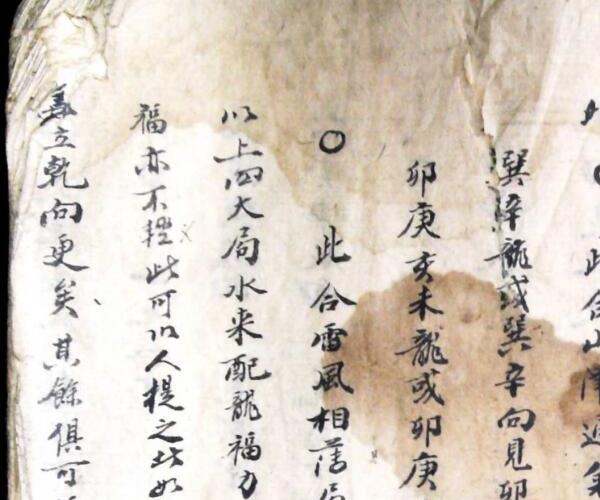 此合山澤通氣
巽辛龍或巽辛向見卯
卯庚亥未龍或卯庚
○此合雷風相薄局
以上四大局水來配龍福力
福亦不輕此可以人提之此如
立乾向更矣其餘俱可